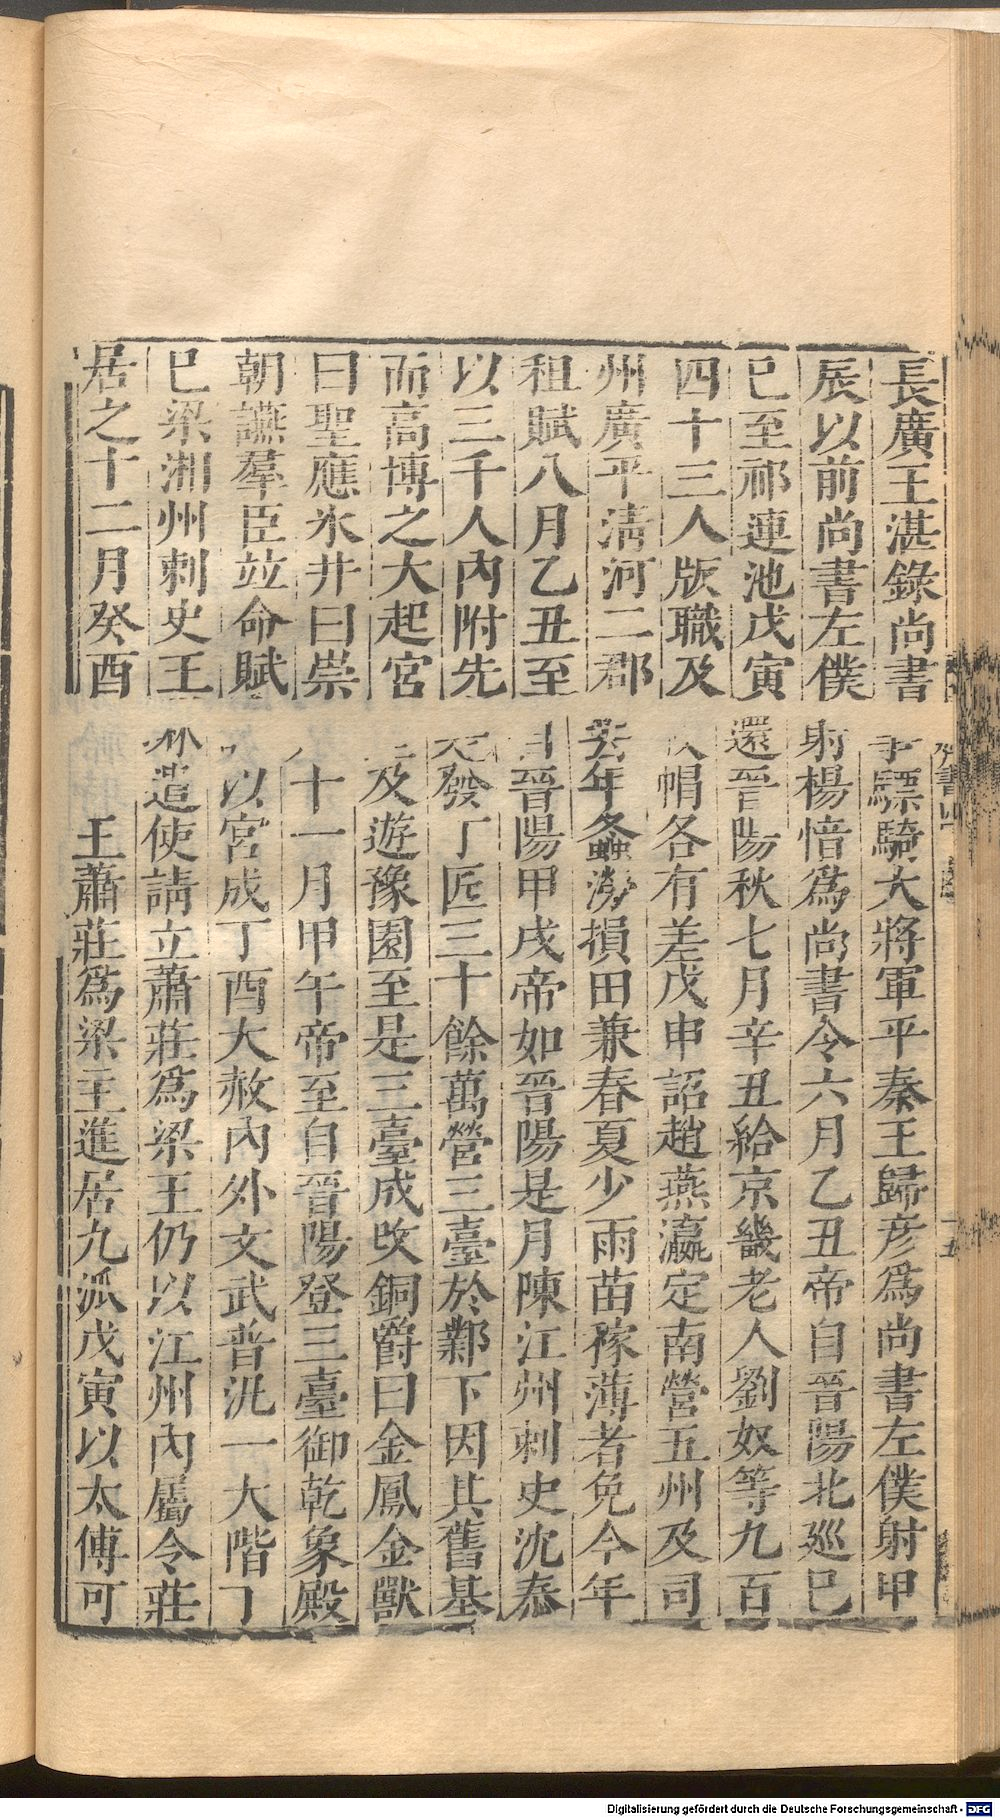 長廣王湛錄尚書事驃騎大將軍平秦王歸彥爲尚書左僕射甲
辰以前尚書左僕射楊愔爲尚書令六月乙丑帝自晉陽北廵己
巳至祁連池戊寅還晉陽秋七月辛丑給京畿老人劉奴等九百
四十三人版職及帽各有差戊申詔趙燕瀛定南營五州及司
州廣平淸河二郡去年螽澇損田兼春夏少雨苗稼薄者免今年
租賦八月乙丑至自晉陽甲戌帝如晉陽是月陳江州刺史沈泰
以三千人內附先發丁匠三十餘萬營三臺於鄴下因其舊基
而高博之大起宮及遊豫園至是三臺成改銅爵曰金鳳金獸
曰聖應氷井曰崇十一月甲午帝至自晉陽登三臺御乾象殿
朝讌羣臣竝命賦以宮成丁酉大赦內外文武普汎一大階丁
巳梁湘州刺史王琳遣使請立蕭莊爲梁王仍以江州內屬令莊
居之十二月癸酉王蕭莊爲梁主進居九泒戊寅以太傅可
Digitalisierung gefördert durch die Deutsche Forschungsgemeinschaft - DFG